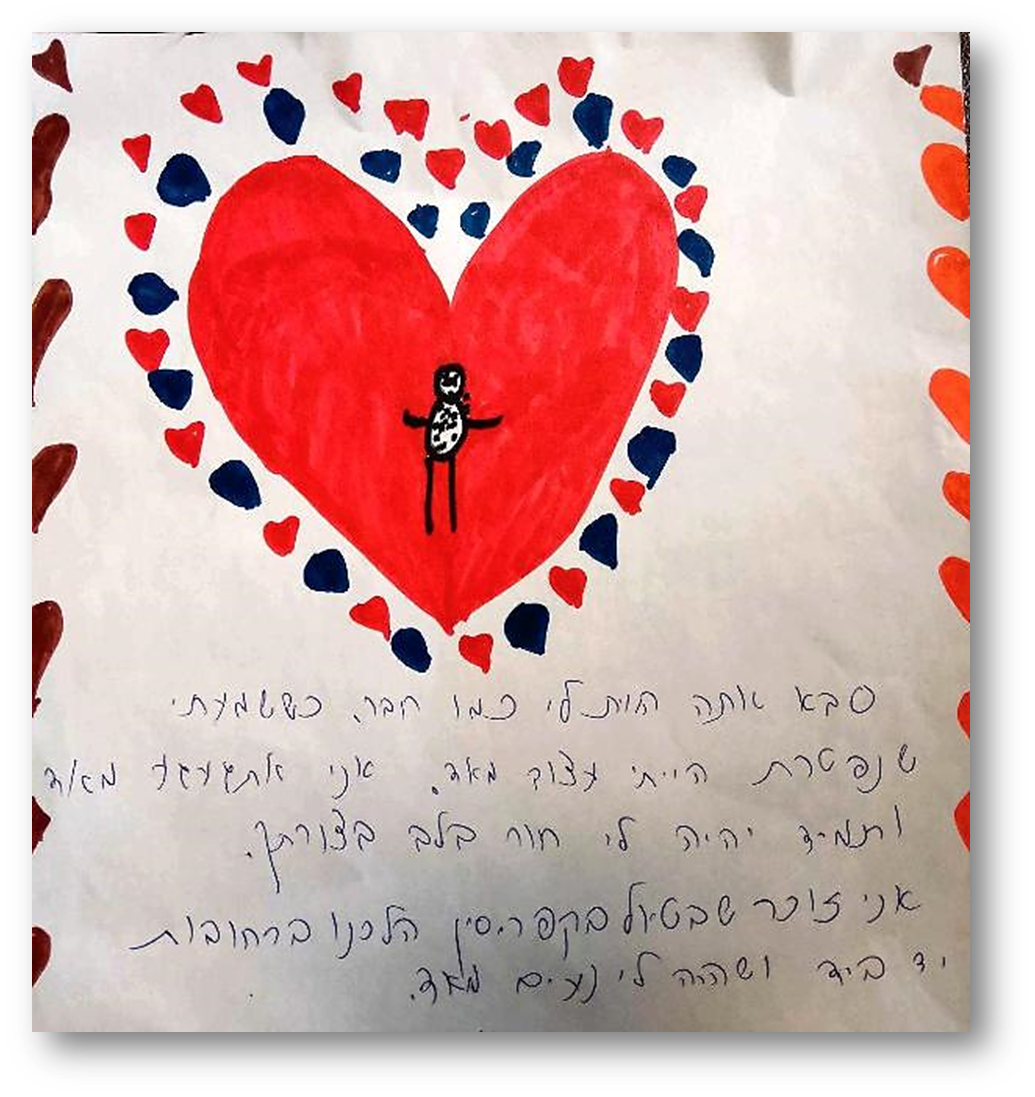 סבא אתה היית לי כמו חבר. כששמעתי
שנפטרת הייתי עצוב מאד. אני אתגעגע מאוד
ותמיד יהיה לי חור בלב בצורתך.
אני זוכר שבטיול בקפריסין הלכנו ברחובות
יד ביד ושהיה לי נעים מאד.